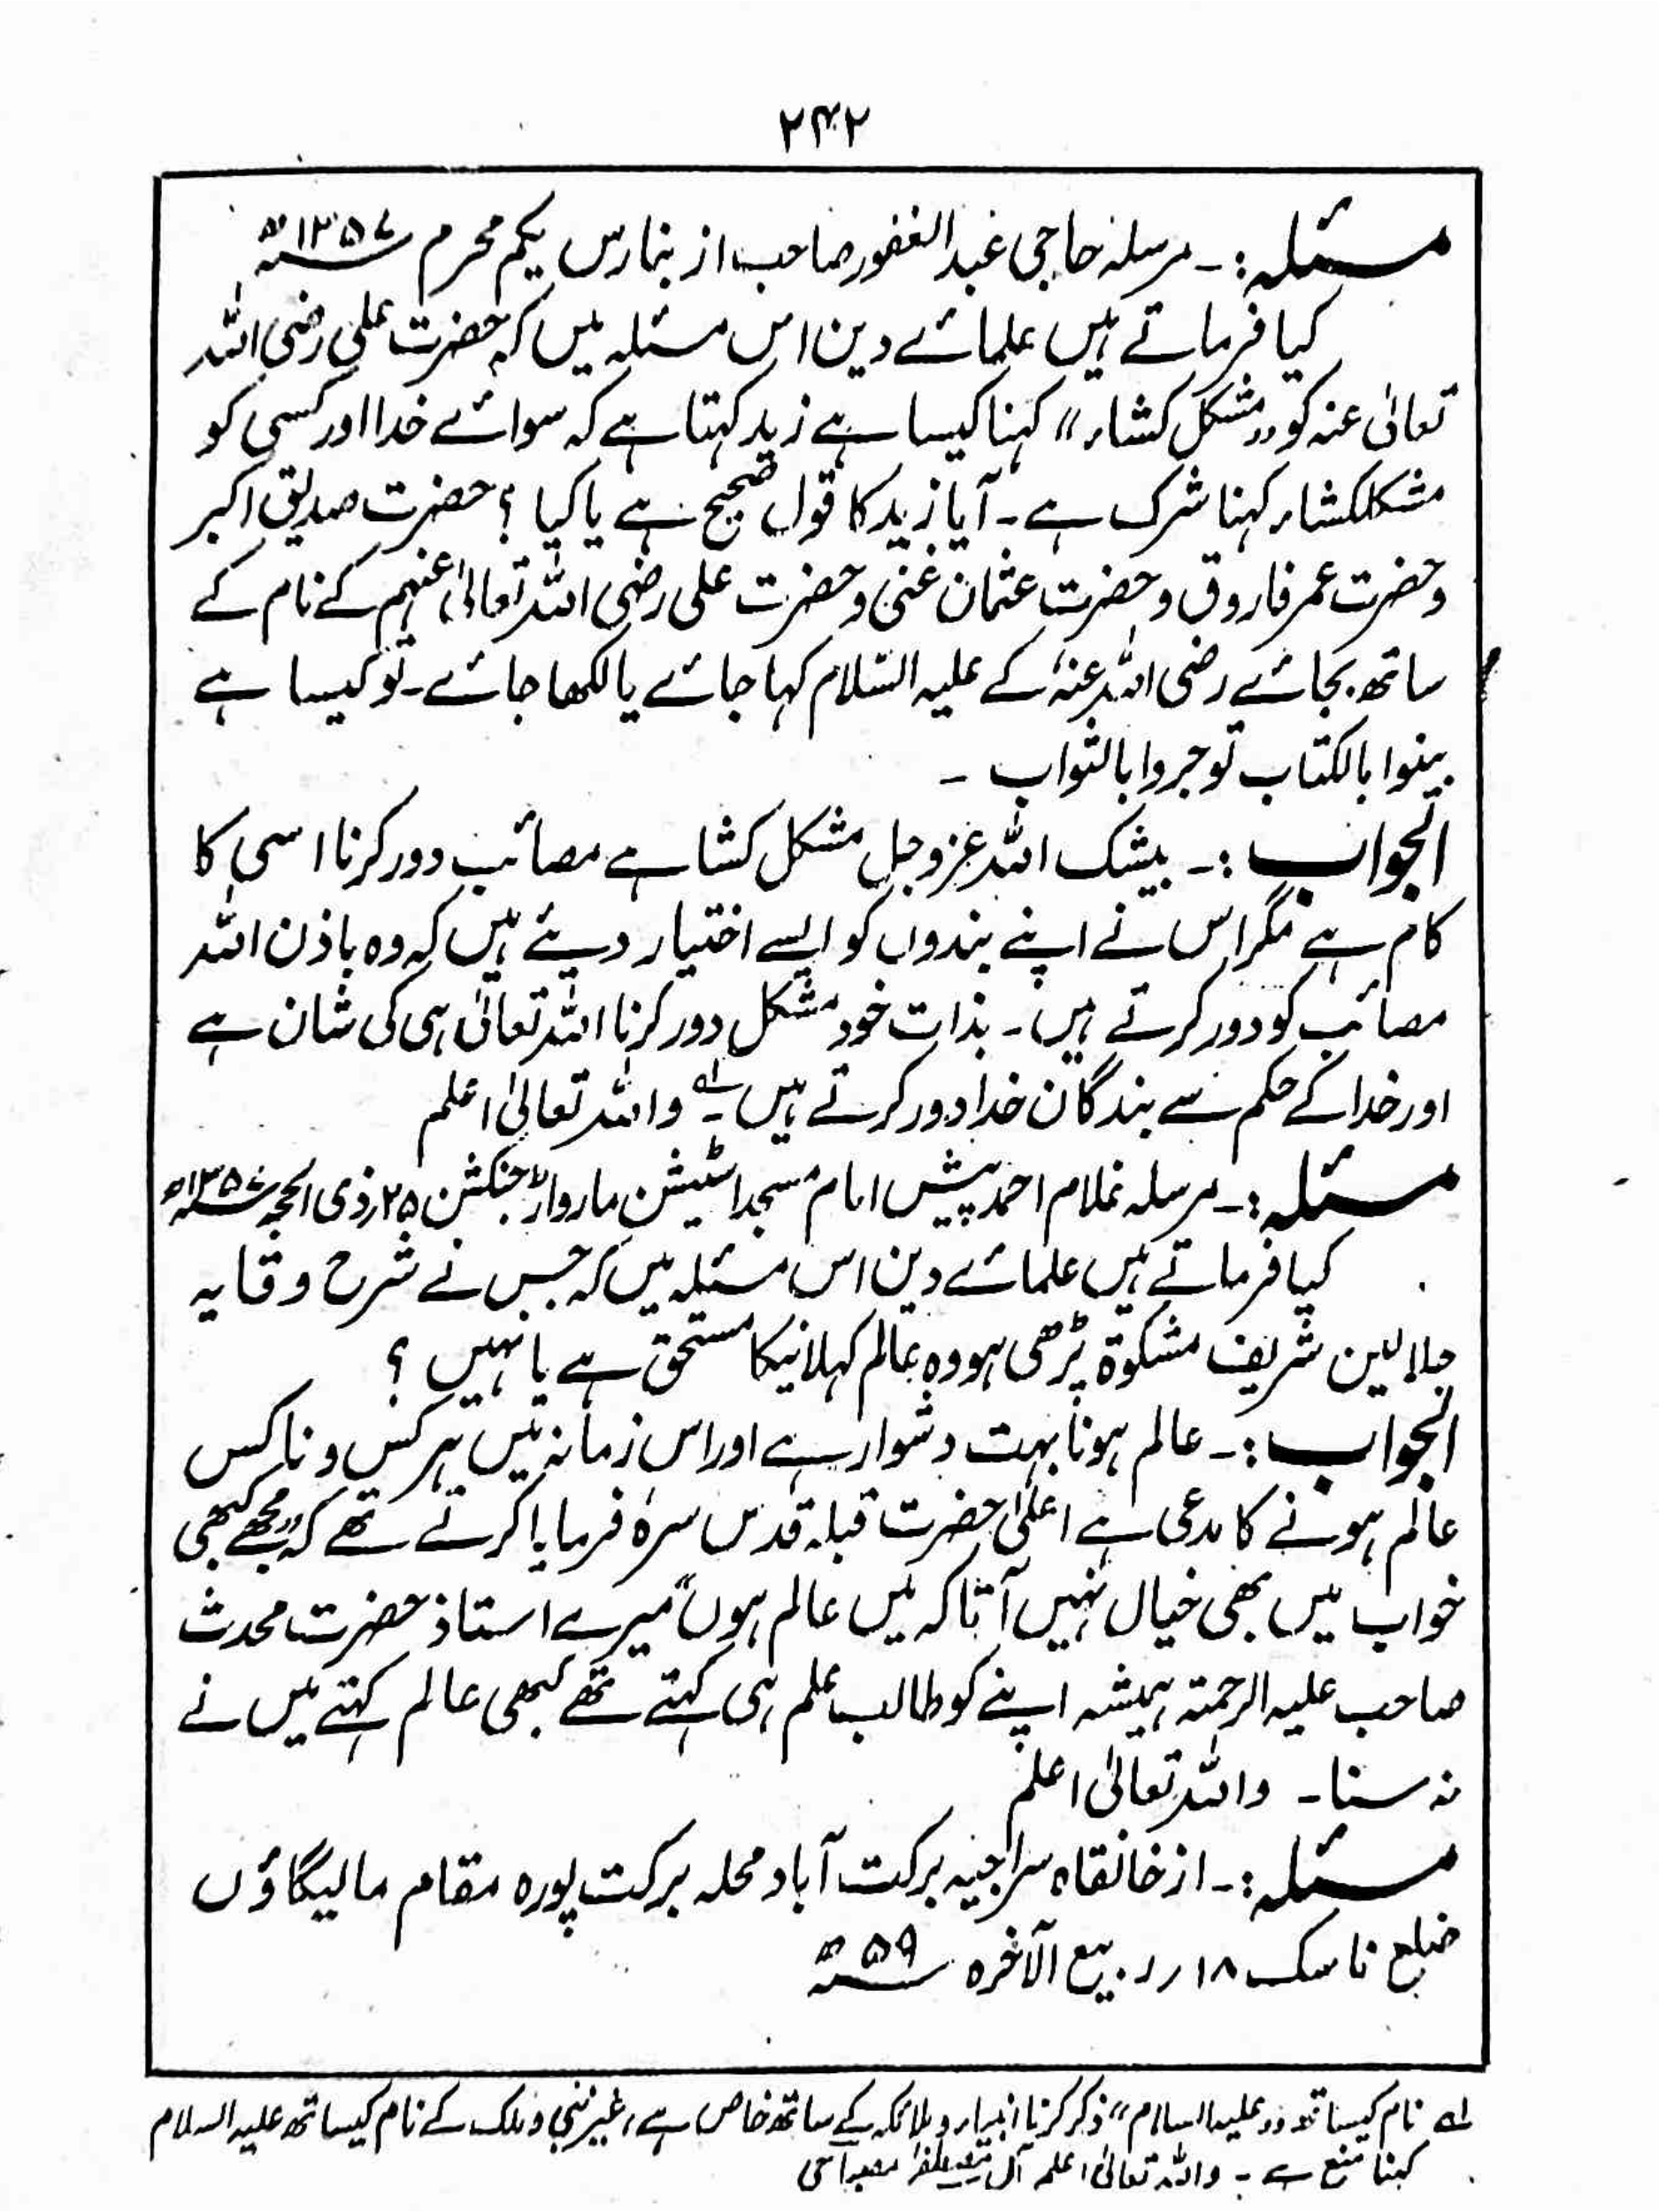 ۲۴۲
مسئلہ:۔ مرسلہ حاجی عبدالغفور صاحب از بنارس یکم محرم ۱۳۵۷ھ
کیا فرماتے ہیں علمائے دین اس مسئلہ میں کہ حضرت علی رضی اللہ
تعالیٰ عنہ کو ,,مشکل کشاء،، کہنا کیسا ہے زید کہتا ہے کہ سوائے خدا اور کسی کو
مشکلکشاء کہنا شرک ہے۔ آیا زید کا قول صحیح ہے یا کیا ؟ حضرت صدیق اکبر
و حضرت عمر فاروق و حضرت عثمان غنی و حضرت علی رضی اللہ تعالیٰ عنہم کے نام کے
ساتھ بجائے رضی اللہ عنہٗ کے علیہ السّلام کہا جائے یا لکھا جائے۔ تو کیسا ہے
بینوا بالکتاب توجروا بالثواب ۔
الجواب :۔ بیشک اللہ عزوجل مشکل کشا ہے مصائب دور کرنا اسی کا
کام ہے مگر اس نے اپنے بندوں کو ایسے اختیار دیئے ہیں کہ وہ باذن اللہ
مصائب کو دور کرتے ہیں۔ بذات خود مشکل دور کرنا اللہ تعالیٰ ہی کی شان ہے
اور خدا کے حکم سے بندگان خدا دور کرتے ہیں۔ لہ واللہ تعالیٰ اعلم
مسئلہ:۔ مرسلہ غلام احمد پیش امام مسجد اسٹیشن مارواڑ جنکشن ۲۵؍ذی الحجہ ۱۳۵۷ھ
کیا فرماتے ہیں علمائے دین اس مسئلہ میں کہ جس نے شرح وقایہ
جلالین شریف مشکوۃ پڑھی ہو وہ عالم کہلانیکا مستحق ہے یا نہیں ؟
الجواب :۔ عالم ہونا بہت دشوار ہے اور اس زمانہ میں ہر کس و ناکس
عالم ہونے کا مدعی ہے اعلیٰ حضرت قبلہ قدس سرہٗ فرمایا کرتے تھے کہ "مجھے کبھی
خواب میں بھی خیال نہیں آتا کہ میں عالم ہوں" میرے استاذ حضرت محدث
صاحب علیہ الرحمۃ ہمیشہ اپنے کو طالب علم ہی کہتے تھے کبھی عالم کہتے میں نے
نہ سنا۔ واللہ تعالیٰ اعلم
مسئلہ:۔ از خانقاہ سراجیہ برکت آباد محلہ برکت پورہ مقام مالیگاؤں
ضلع ناسک ۱۸؍ ربیع الآخرہ ۵۹ھ
لہ نام کیساتھ ,,علیہ السلام،، ذکر کرنا انبیاء و ملائکہ کے ساتھ خاص ہے، غیر نبی و ملک کے نام کیساتھ علیہ السلام
کہنا منع ہے ۔ واللہ تعالیٰ اعلم آل مصطفےٰ مصباحی